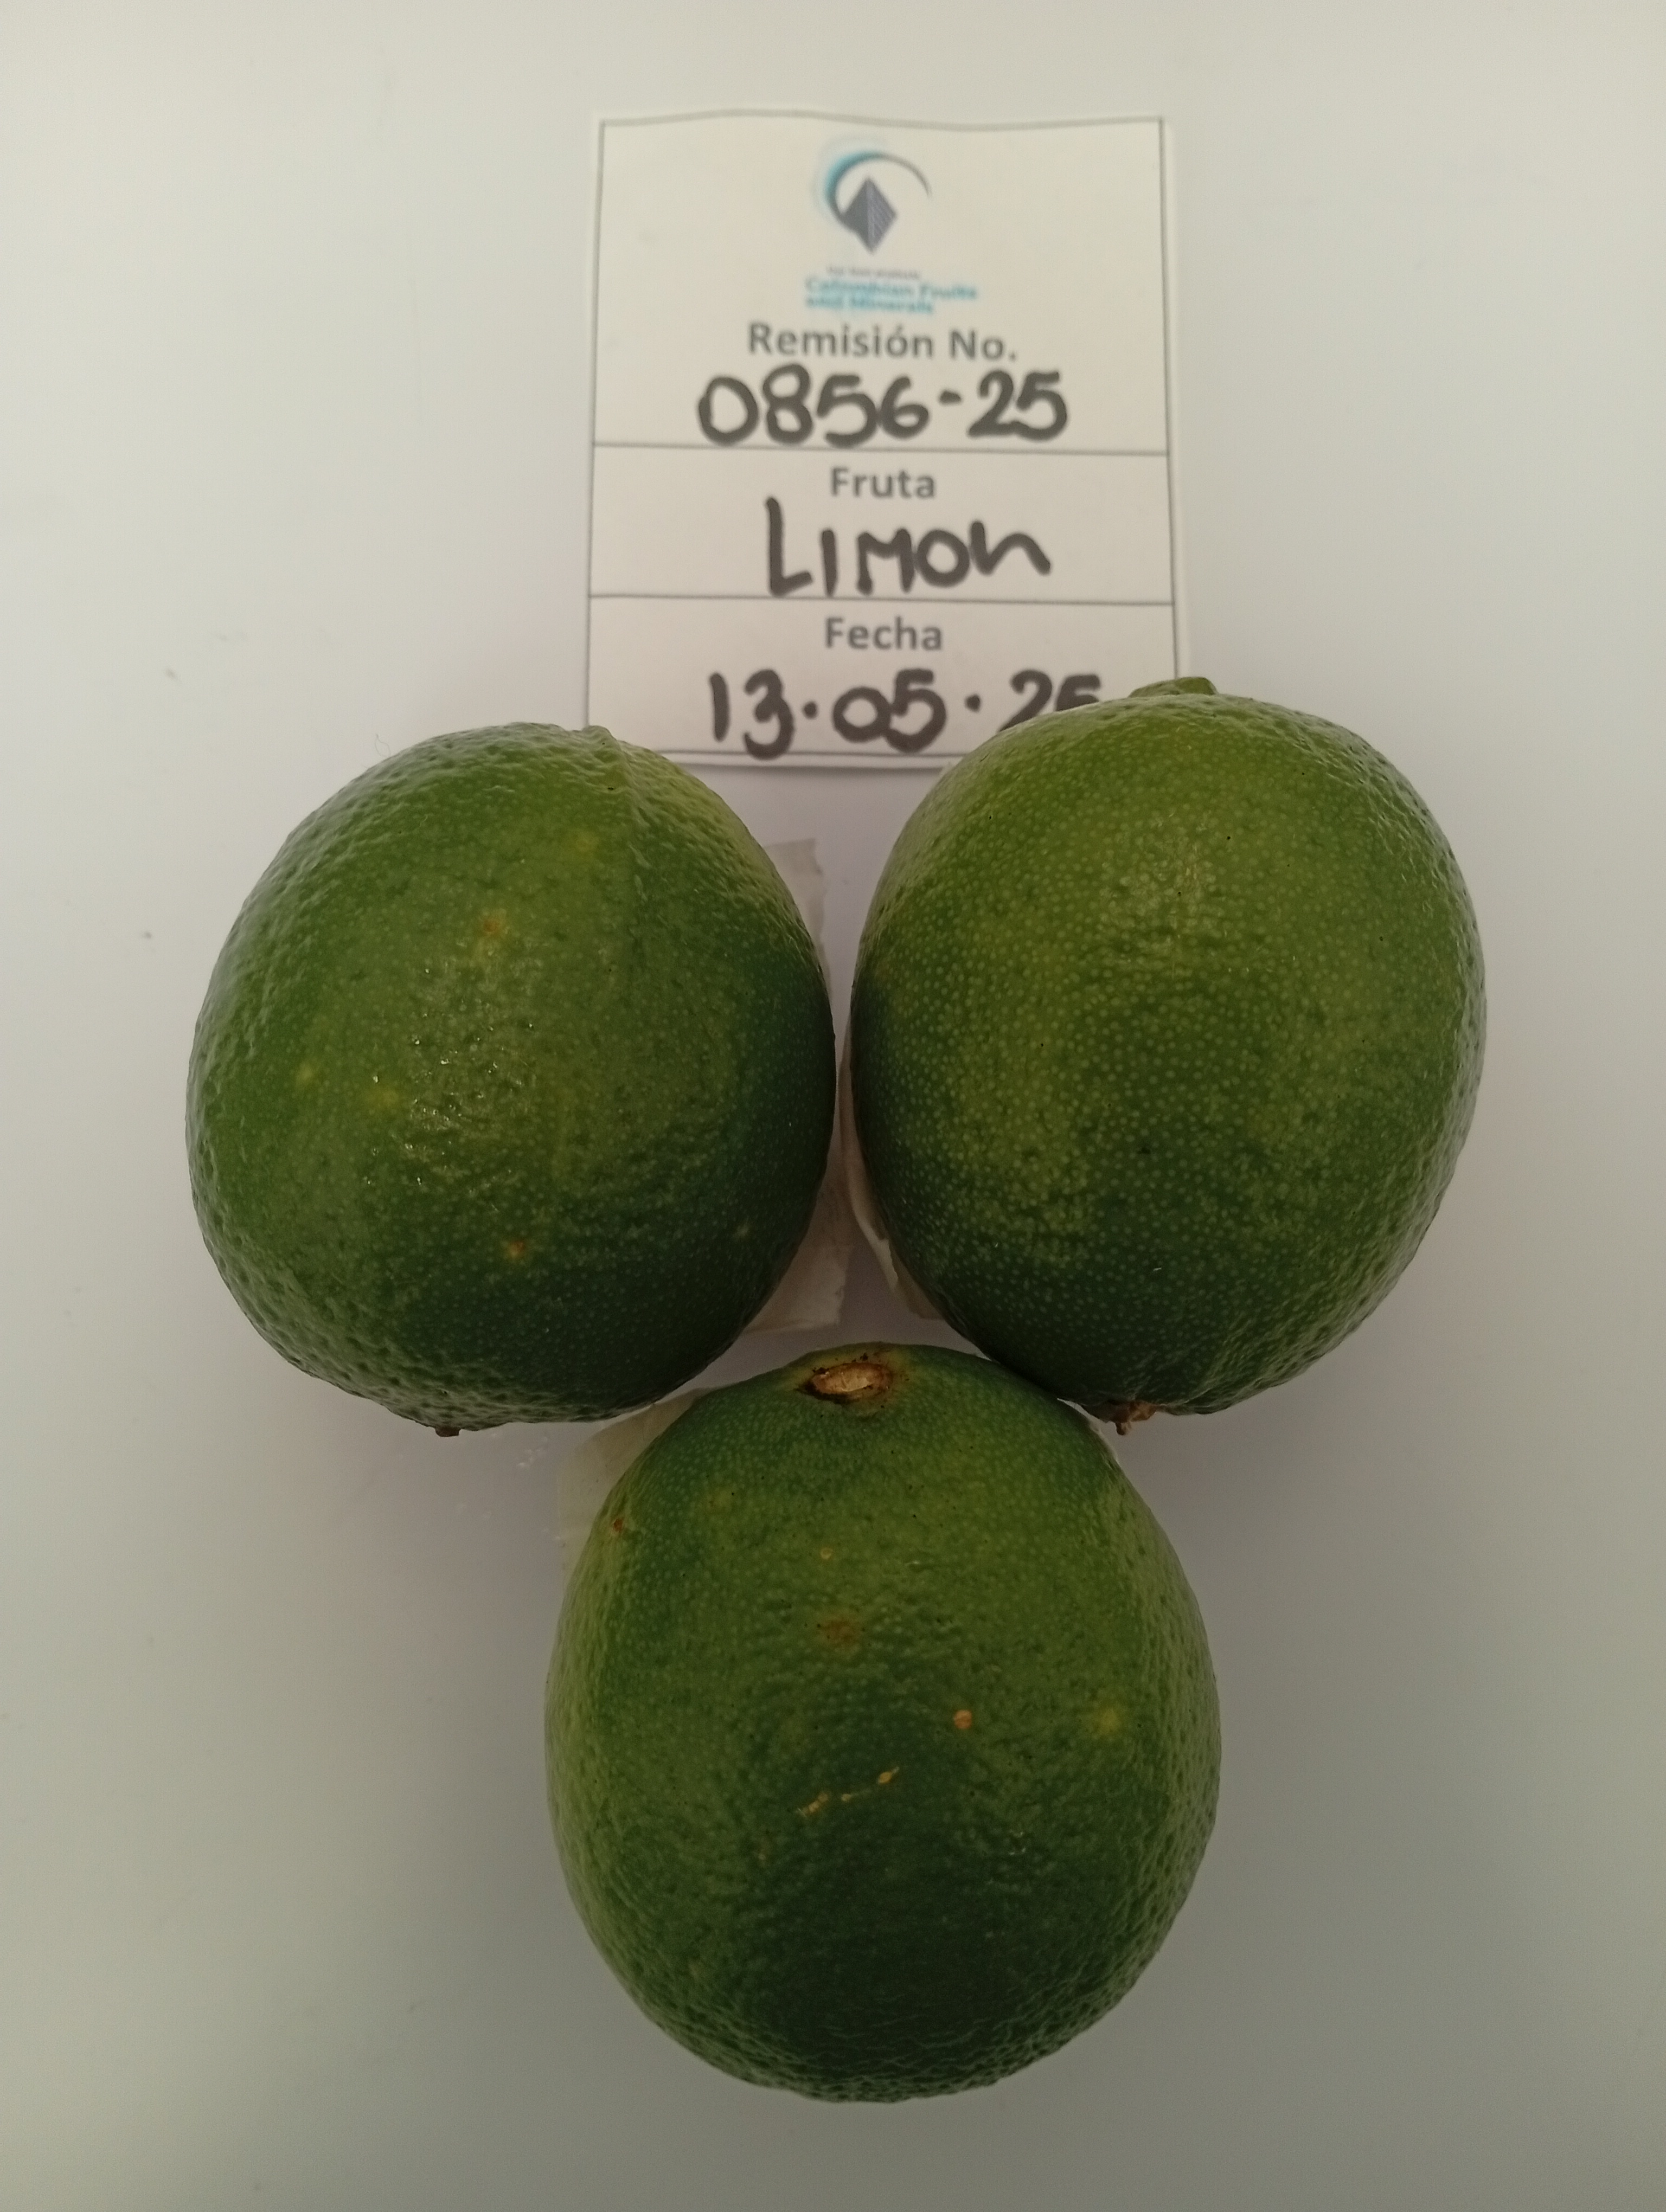 Colombian Fruits
and Minerals
Remisión No.
0856-25
Fruta
LIMON
Fecha
13.05.25